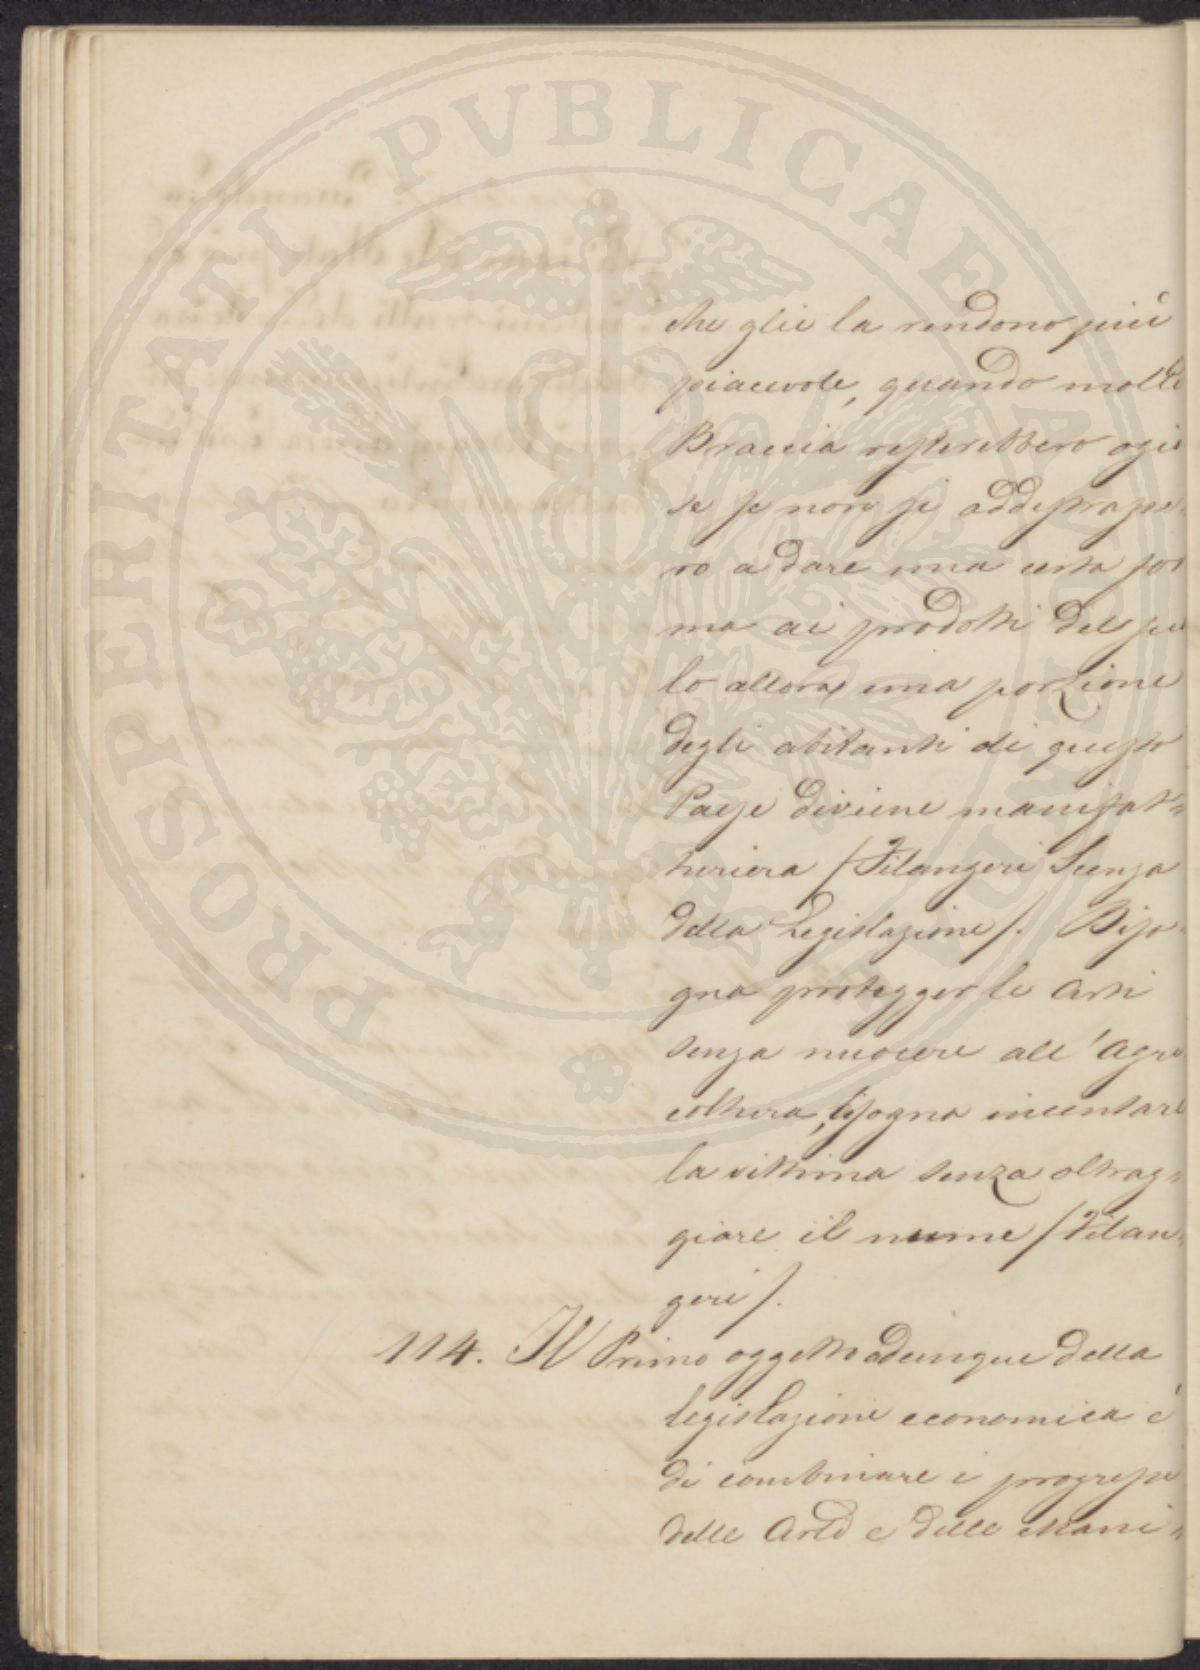 PROSPERITATI PVBLICAE
che glie la rendono più
piacevole, quando molte
Braccia resterebbero ozio
se se non si addestrasse
ro a dare una certa for
ma ai prodotti del suo
lo allora, una porzione
degli abitanti di questo
Paese diviene manifat=
turiera /Filangeri Scenza
della Legislazione/. Biso
gna protegger le Arti
senza nuocere all'Agri
coltura, bisogna incensare
la vittima senza oltrag=
giare il nume /Filan=
geri/.
114. Il Primo oggetto adunque della
legislazione economica è
di combinare i progressi
delle Arti e delle Mani=